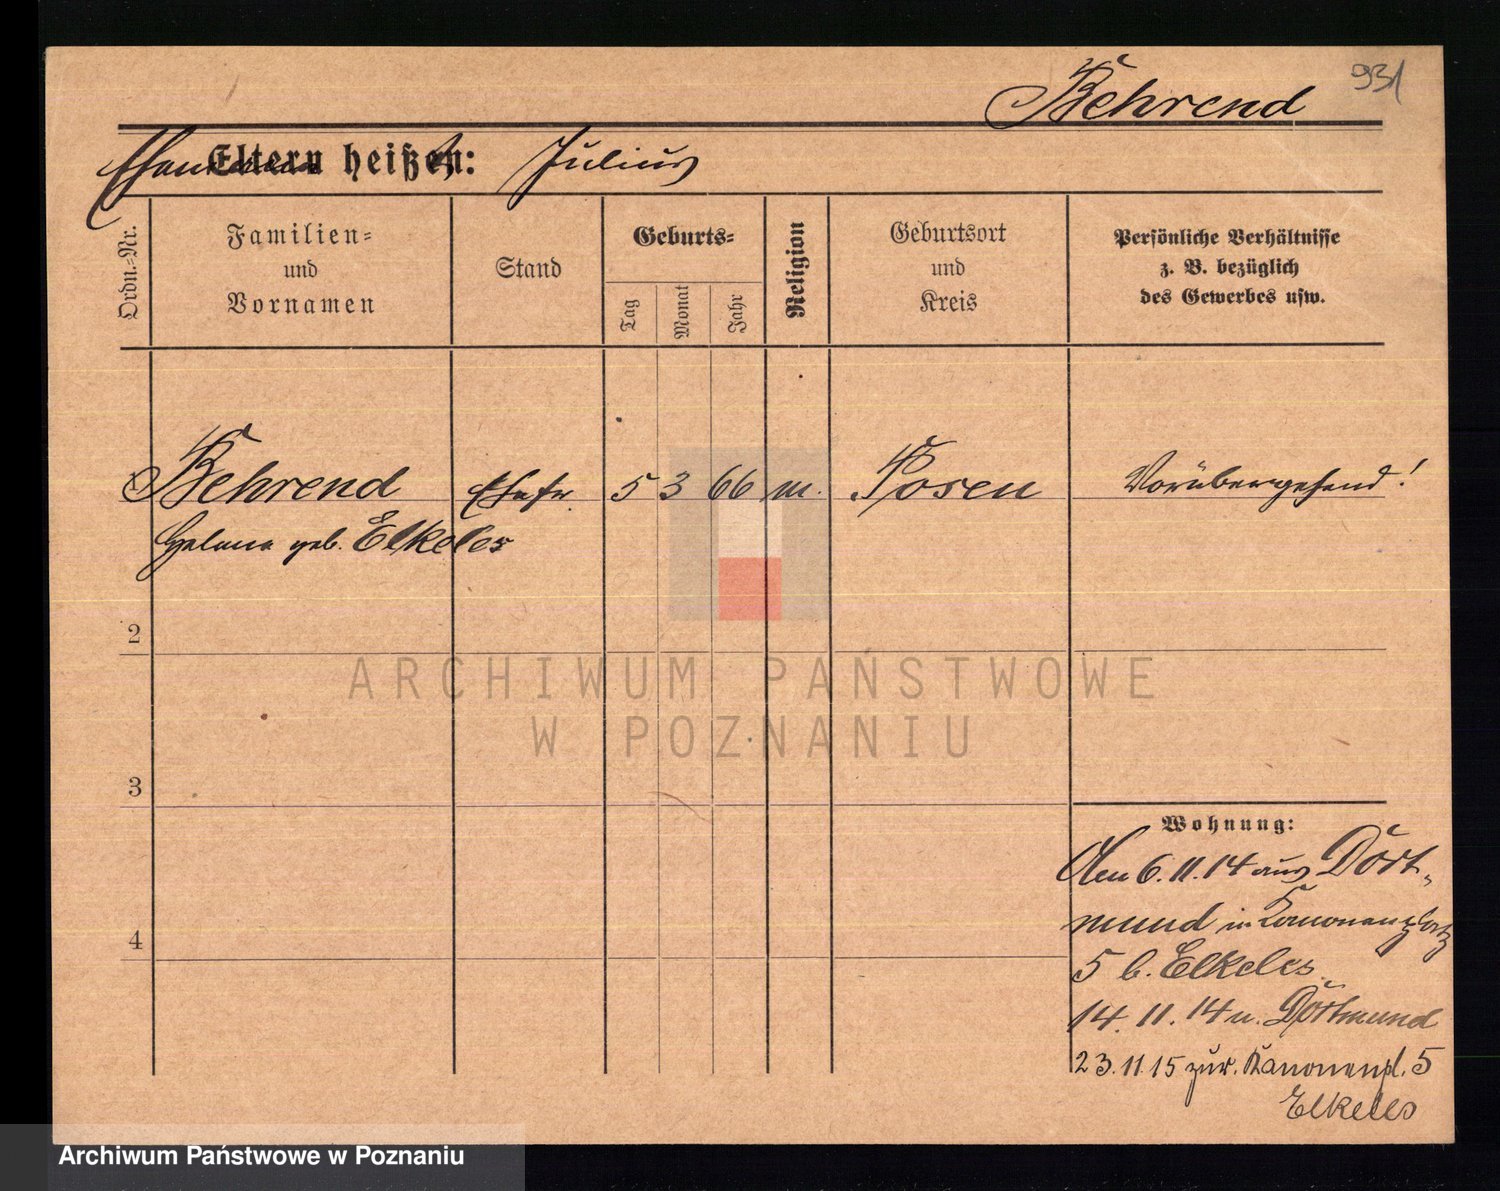 931
Behrend
Ehemann
Eltern heißen: Julius
Ordn.-Nr.
Familien-
und
Vornamen
Stand
Geburts-
Tag
Monat
Jahr
Religion
Geburtsort
und
Kreis
Persönliche Verhältnisse
z. B. bezüglich
des Gewerbes usw.
Behrend Ehefr. 5 3 66 m. Posen Vorübergehend!
Helene geb. Elkeles
2
3
4
Wohnung:
Am 6.11.14 aus Dort-
mund in Kanonenplatz
5 b. Elkeles
14.11.14 n. Dortmund
23.11.15 zur. Kanonenpl. 5
Elkeles
ARCHIWUM PAŃSTWOWE
W POZNANIU
Archiwum Państwowe w Poznaniu